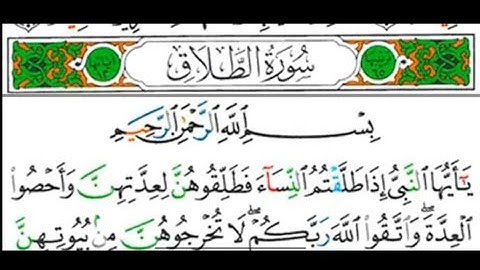 سُورَةُ الطَّلَاقِ
بِسْمِ اللَّهِ الرَّحْمَٰنِ الرَّحِيمِ
يَا أَيُّهَا النَّبِيُّ إِذَا طَلَّقْتُمُ النِّسَاءَ فَطَلِّقُوهُنَّ لِعِدَّتِهِنَّ وَأَحْصُوا
الْعِدَّةَ ۖ وَاتَّقُوا اللَّهَ رَبَّكُمْ ۖ لَا تُخْرِجُوهُنَّ مِن بُيُوتِهِنَّ